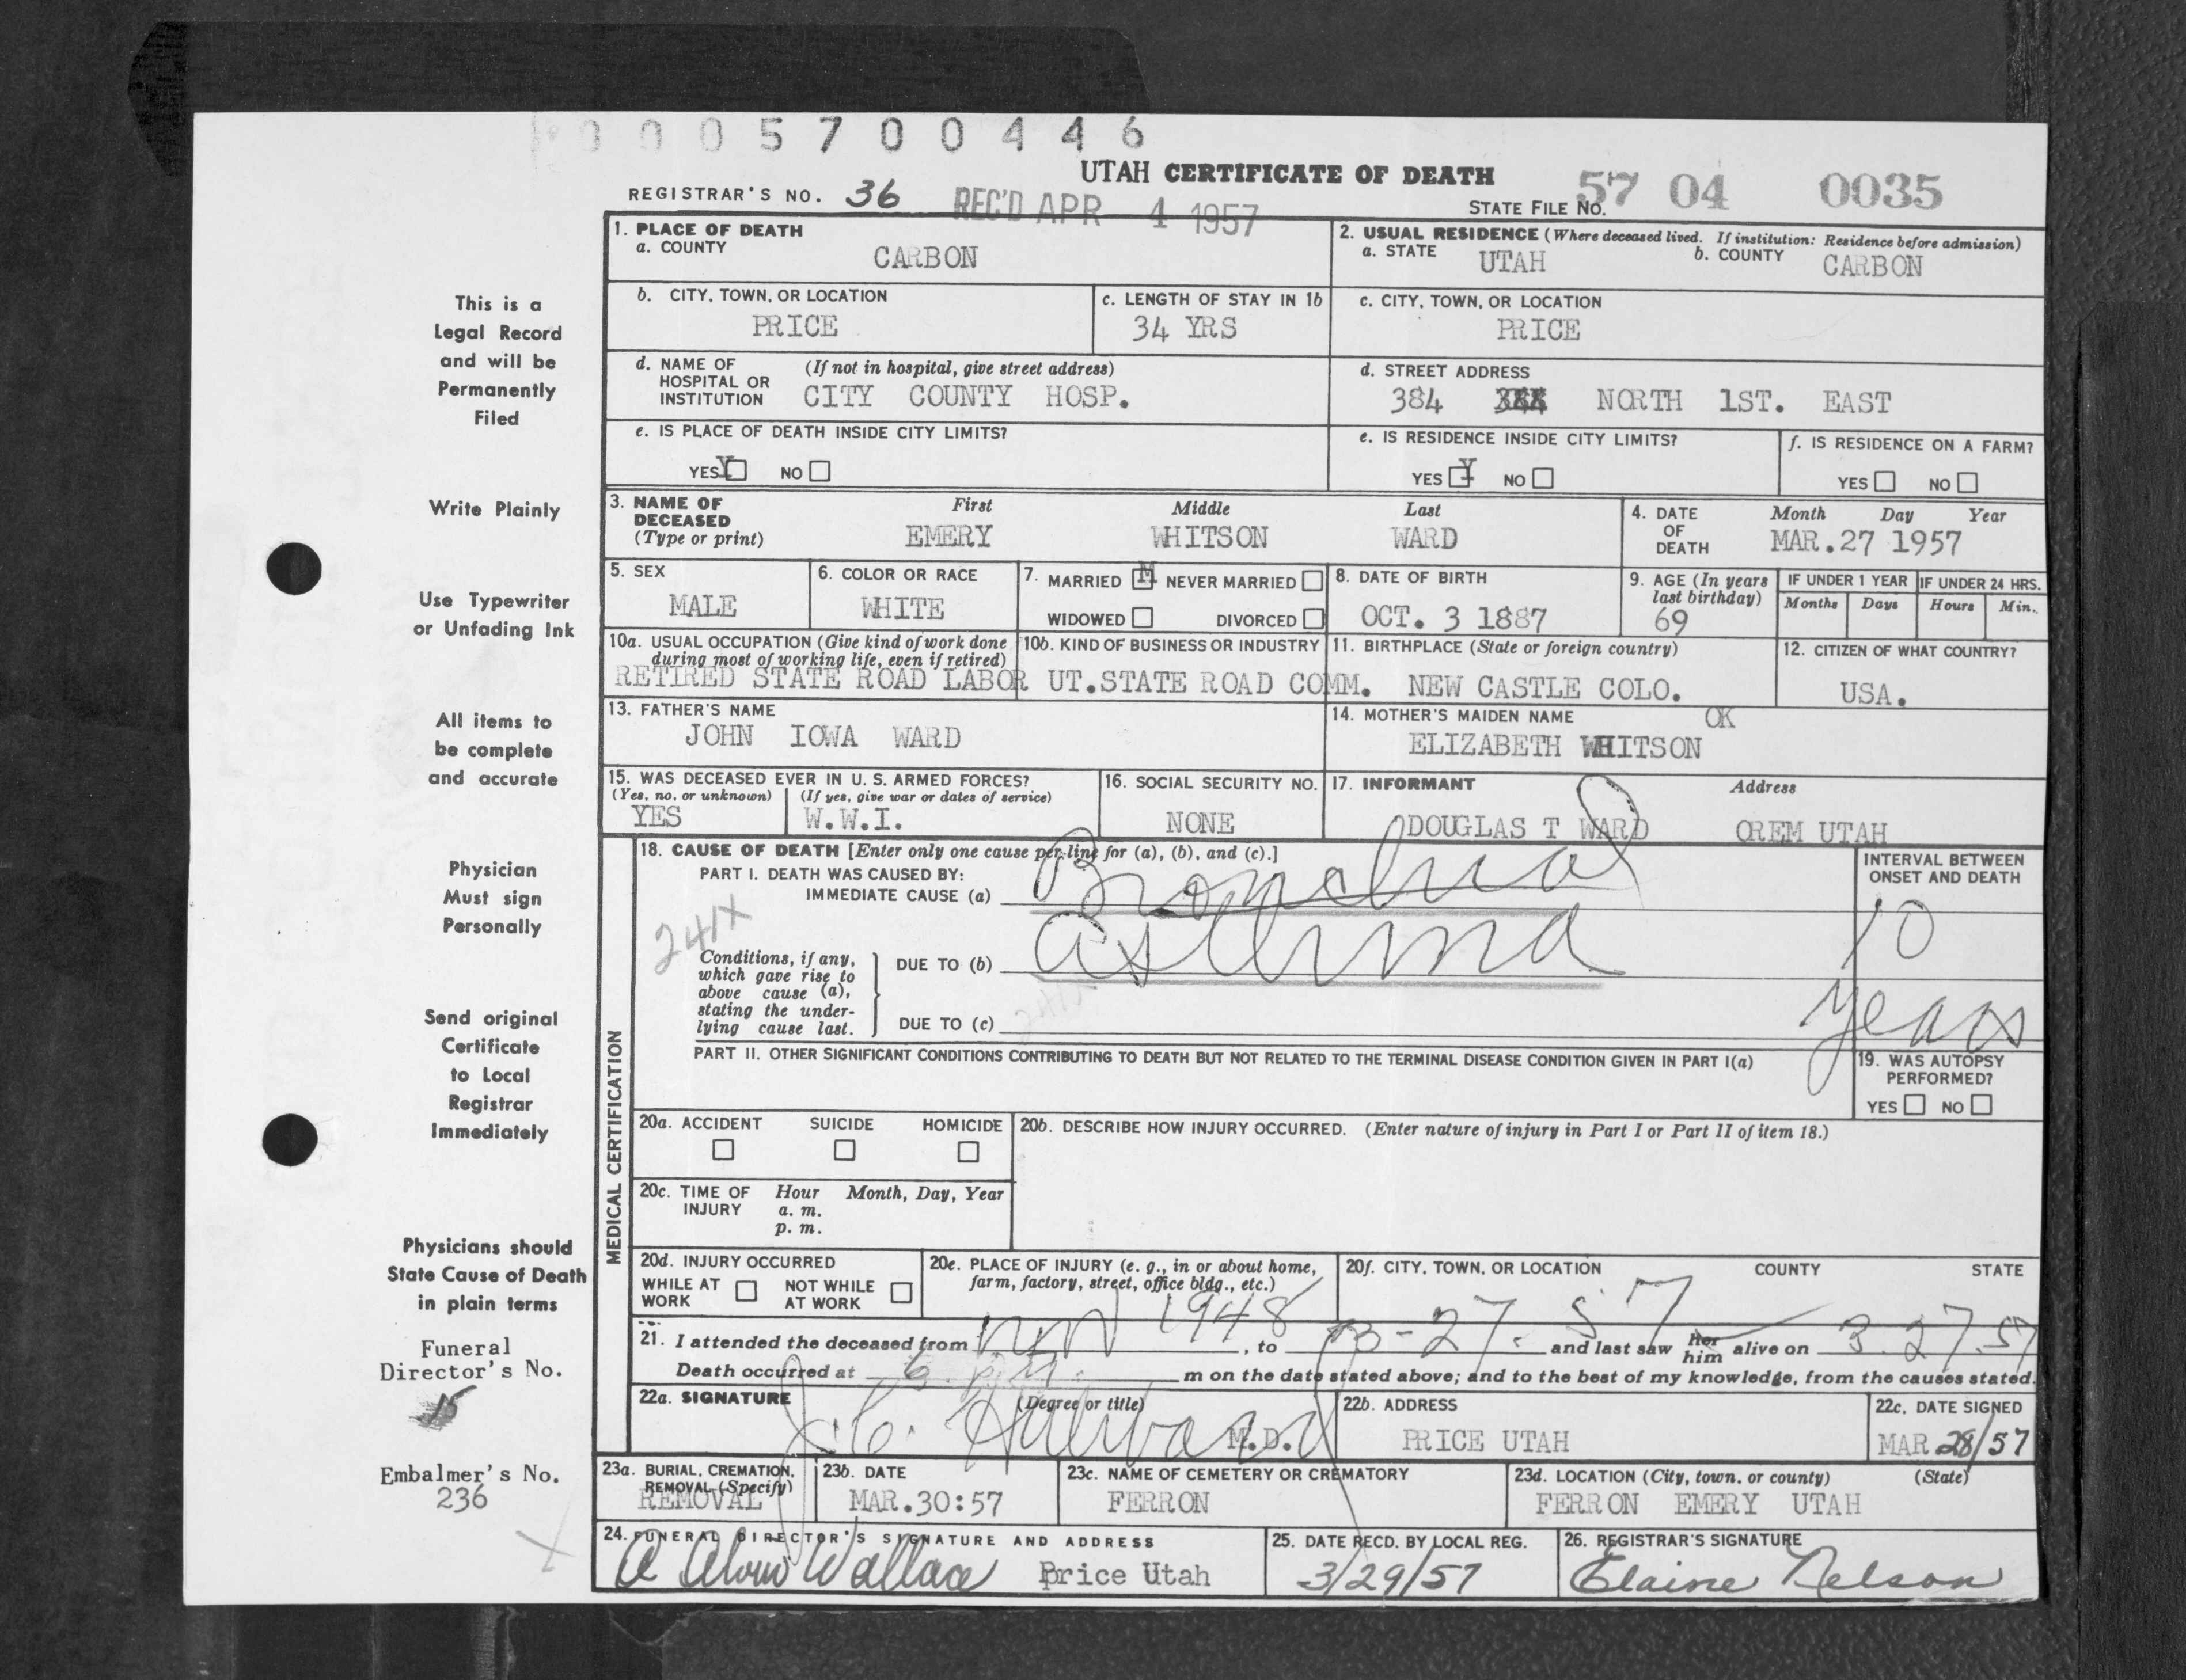 0005700446
UTAH CERTIFICATE OF DEATH
REGISTRAR'S NO. 36 REC'D APR 4 1957 STATE FILE NO. 57 04 0035
1. PLACE OF DEATH
a. COUNTY CARBON
2. USUAL RESIDENCE (Where deceased lived. If institution: Residence before admission)
a. STATE UTAH b. COUNTY CARBON
b. CITY, TOWN, OR LOCATION PRICE
c. LENGTH OF STAY IN 1b 34 YRS
c. CITY, TOWN, OR LOCATION PRICE
d. NAME OF HOSPITAL OR INSTITUTION (If not in hospital, give street address) CITY COUNTY HOSP.
d. STREET ADDRESS 384 NORTH 1ST. EAST
e. IS PLACE OF DEATH INSIDE CITY LIMITS?
YES Y NO
e. IS RESIDENCE INSIDE CITY LIMITS?
YES Y NO
f. IS RESIDENCE ON A FARM?
YES NO
3. NAME OF DECEASED (Type or print)
First Middle Last
EMERY WHITSON WARD
4. DATE OF DEATH Month Day Year
MAR.27 1957
5. SEX MALE
6. COLOR OR RACE WHITE
7. MARRIED M NEVER MARRIED
WIDOWED DIVORCED
8. DATE OF BIRTH OCT. 3 1887
9. AGE (In years last birthday) 69
IF UNDER 1 YEAR Months Days
IF UNDER 24 HRS. Hours Min.
10a. USUAL OCCUPATION (Give kind of work done during most of working life, even if retired)
RETIRED STATE ROAD LABOR
10b. KIND OF BUSINESS OR INDUSTRY
UT.STATE ROAD COMM.
11. BIRTHPLACE (State or foreign country)
NEW CASTLE COLO.
12. CITIZEN OF WHAT COUNTRY?
USA.
13. FATHER'S NAME
JOHN IOWA WARD
14. MOTHER'S MAIDEN NAME OK
ELIZABETH WHITSON
15. WAS DECEASED EVER IN U. S. ARMED FORCES?
(Yes, no, or unknown) (If yes, give war or dates of service)
YES W.W.I.
16. SOCIAL SECURITY NO.
NONE
17. INFORMANT Address
DOUGLAS T WARD OREM UTAH
MEDICAL CERTIFICATION
18. CAUSE OF DEATH [Enter only one cause per line for (a), (b), and (c).]
PART I. DEATH WAS CAUSED BY:
IMMEDIATE CAUSE (a) Bronchial
241X
Conditions, if any, which gave rise to above cause (a), stating the underlying cause last.
DUE TO (b) asthma
DUE TO (c)
INTERVAL BETWEEN ONSET AND DEATH
10
years
PART II. OTHER SIGNIFICANT CONDITIONS CONTRIBUTING TO DEATH BUT NOT RELATED TO THE TERMINAL DISEASE CONDITION GIVEN IN PART I(a)
19. WAS AUTOPSY PERFORMED?
YES NO
20a. ACCIDENT SUICIDE HOMICIDE
20b. DESCRIBE HOW INJURY OCCURRED. (Enter nature of injury in Part I or Part II of item 18.)
20c. TIME OF INJURY Hour Month, Day, Year
a. m.
p. m.
20d. INJURY OCCURRED
WHILE AT WORK NOT WHILE AT WORK
20e. PLACE OF INJURY (e. g., in or about home, farm, factory, street, office bldg., etc.)
20f. CITY, TOWN, OR LOCATION COUNTY STATE
21. I attended the deceased from 1948, to 3-27-57 and last saw her him alive on 3.27.57
Death occurred at 6 p.m. m on the date stated above; and to the best of my knowledge, from the causes stated.
22a. SIGNATURE (Degree or title)
M.D.
22b. ADDRESS
PRICE UTAH
22c. DATE SIGNED
MAR 28/57
23a. BURIAL, CREMATION, REMOVAL (Specify)
REMOVAL
23b. DATE
MAR.30:57
23c. NAME OF CEMETERY OR CREMATORY
FERRON
23d. LOCATION (City, town, or county) (State)
FERRON EMERY UTAH
24. FUNERAL DIRECTOR'S SIGNATURE AND ADDRESS
Wallace Price Utah
25. DATE RECD. BY LOCAL REG.
3/29/57
26. REGISTRAR'S SIGNATURE
Elaine Nelson
This is a
Legal Record
and will be
Permanently
Filed
Write Plainly
Use Typewriter
or Unfading Ink
All items to
be complete
and accurate
Physician
Must sign
Personally
Send original
Certificate
to Local
Registrar
Immediately
Physicians should
State Cause of Death
in plain terms
Funeral
Director's No.
15
Embalmer's No.
236